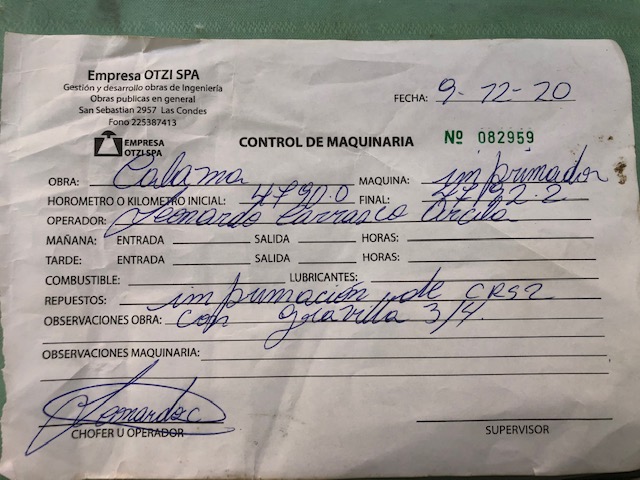 Empresa OTZI SPA
Gestión y desarrollo obras de Ingeniería
Obras publicas en general
San Sebastian 2957 Las Condes
Fono 225387413
FECHA: 9-12-20
EMPRESA
OTZI SPA
CONTROL DE MAQUINARIA Nº 082959
OBRA: Calama MAQUINA: imprimador
HOROMETRO O KILOMETRO INICIAL: 4790.0 FINAL:
OPERADOR: Leonardo Carrasco
MAÑANA: ENTRADA SALIDA HORAS:
TARDE: ENTRADA SALIDA HORAS:
COMBUSTIBLE: LUBRICANTES:
REPUESTOS: imprimación de CRS2
OBSERVACIONES OBRA: Con gravilla 3/4.
OBSERVACIONES MAQUINARIA:
CHOFER U OPERADOR
SUPERVISOR